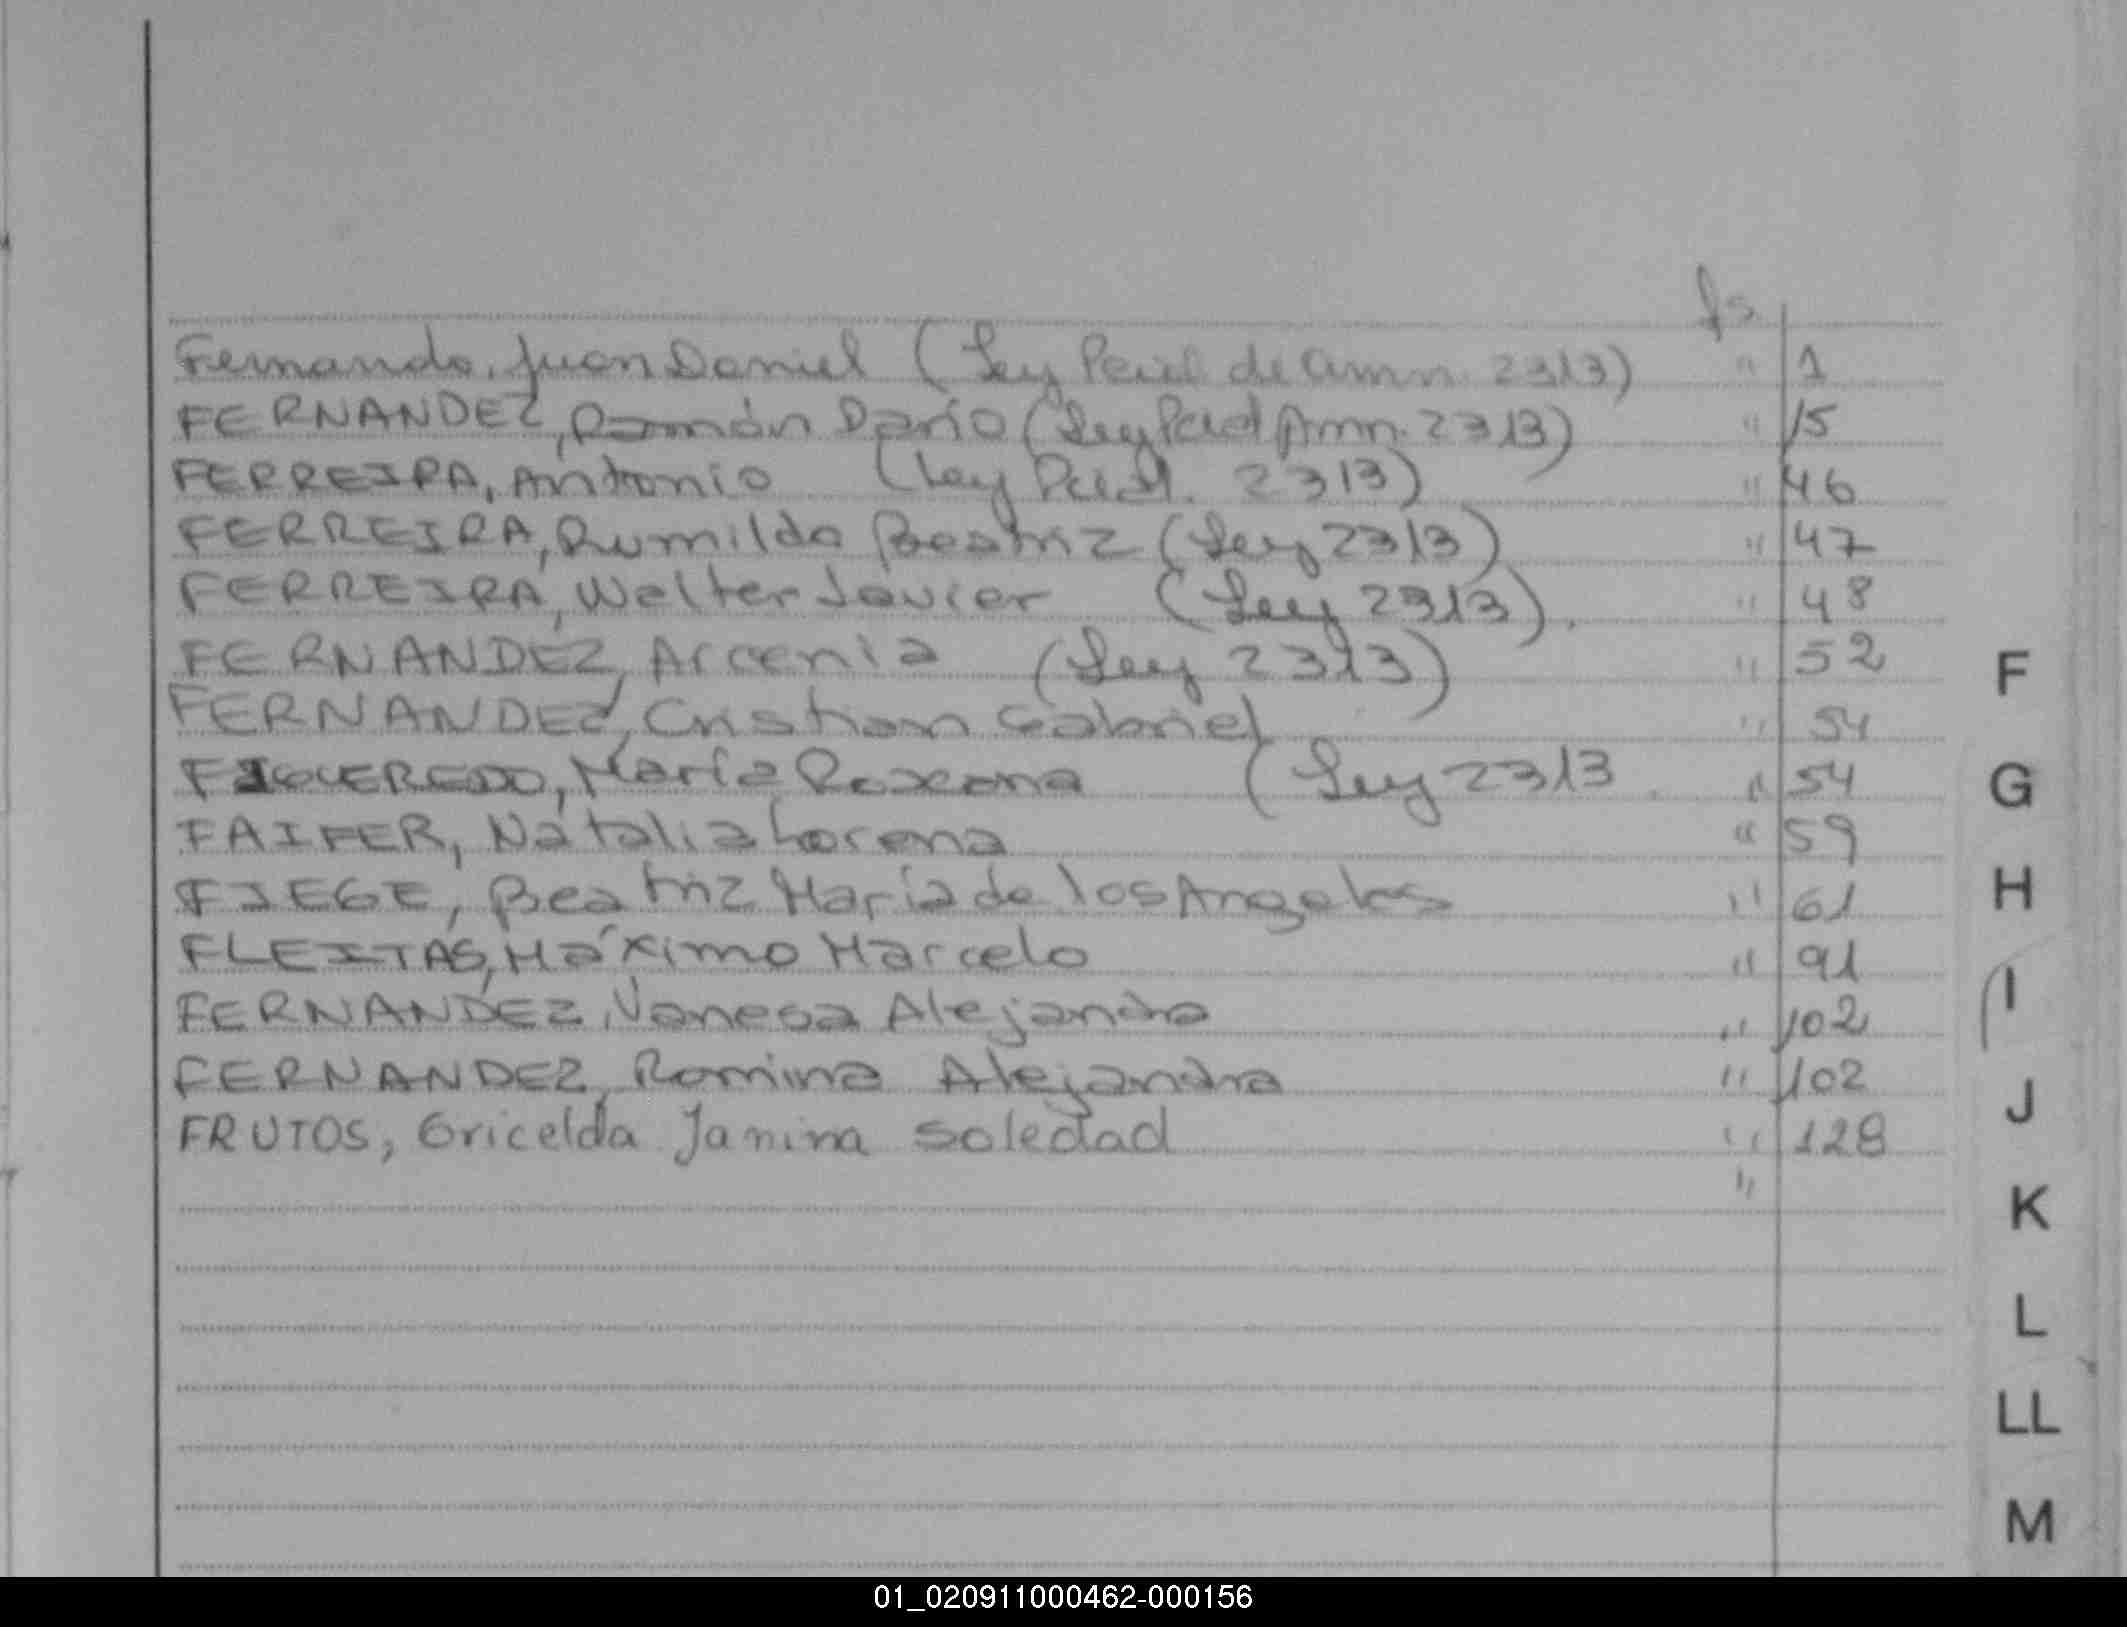 fs
Fernando, Juan Daniel (Ley Pcial de amn. 2313) " 1
FERNANDEZ, Román Darío (Ley Pcial Amn. 2313) " 15
FERREIRA, Antonio (Ley Pcial. 2313) " 46
FERREIRA, Rumilda Beatriz (Ley 2313) " 47
FERREIRA, Walter Javier (Ley 2313). " 48
FERNANDEZ, Arcenia (Ley 2313) " 52
FERNANDEZ, Cristian Gabriel " 54
FIGUEREDO, María Roxana (Ley 2313 " 54
FAIFER, Natalia Lorena " 59
FIEGE, Beatriz María de los Angeles " 61
FLEITAS, Máximo Marcelo " 91
FERNANDEZ, Vanesa Alejandra " 102
FERNANDEZ, Romina Alejandra " 102
FRUTOS, Gricelda Janina Soledad " 128
"
F
G
H
I
J
K
L
LL
M
01_020911000462-000156